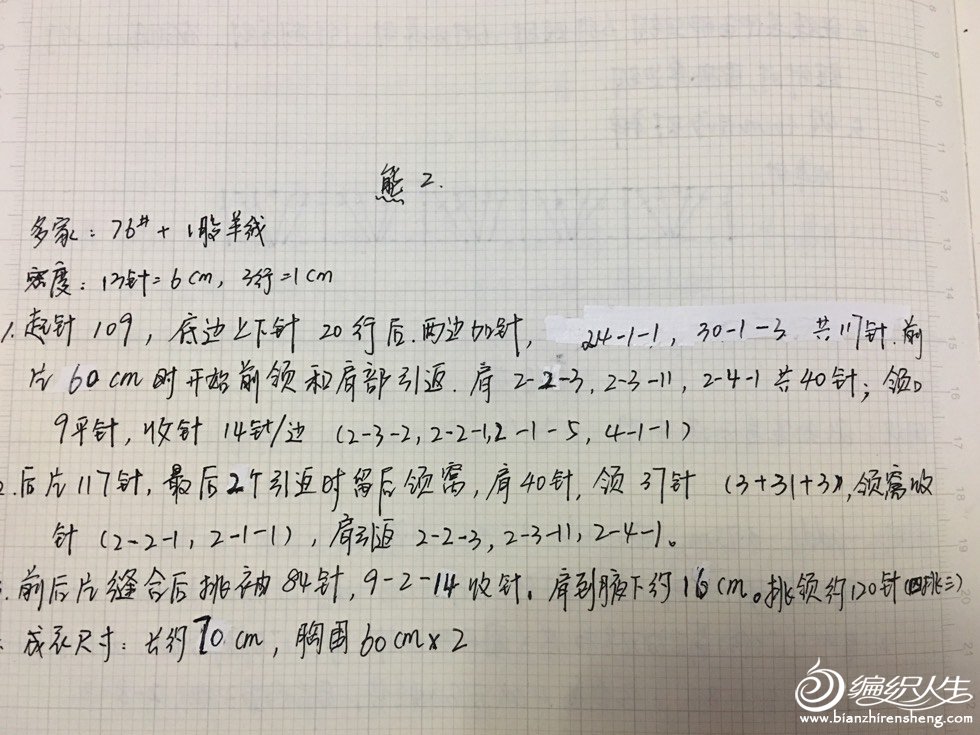 熊 2.
多家：76# + 1股羊绒
密度：13针=6cm，3行=1cm
1. 起针109，底边上下针 20行后.两边加针， 24-1-1，30-1-3 共117针.前
片 60cm时开始前领和肩部引返. 肩 2-2-3, 2-3-11, 2-4-1 共40针；领口
9平针，收针 14针/边 (2-3-2, 2-2-1, 2-1-5, 4-1-1)
2. 后片117针，最后2个引返时留后领窝，肩40针，领 37针 (3+31+3)，领窝收
针 (2-2-1, 2-1-1)，肩引返 2-2-3, 2-3-11, 2-4-1。
前后片缝合后挑袖84针，9-2-14收针。肩到腋下约16cm。挑领约120针(四挑三)
成衣尺寸：长约70cm，胸围60cm×2
编织人生
www.bianzhirensheng.com